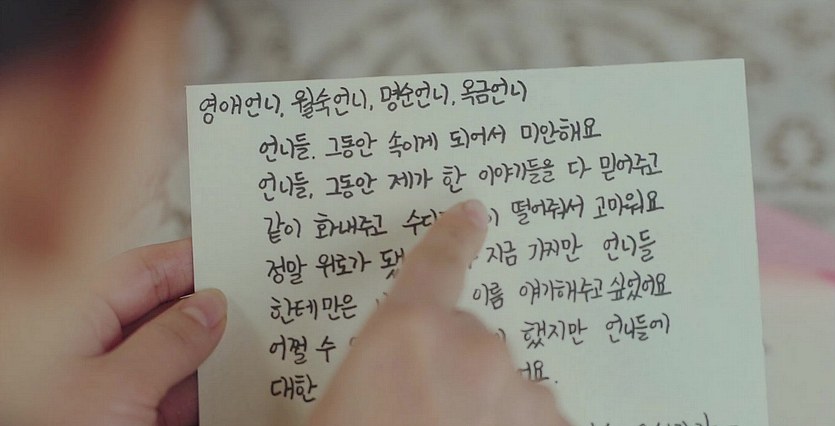 영애언니, 월숙언니, 명순언니, 옥금언니
언니들. 그동안 속이게 되어서 미안해요
언니들, 그동안 제가 한 이야기들을 다 믿어주고
같이 화내주고 떨어줘서 고마워요
정말 위로가 지금 가지만 언니들
한테만은 이름 얘기해주고 싶었어요
어쩔 수 했지만 언니들에
대한